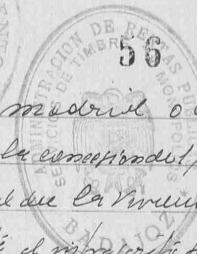 56
ADMINISTRACION DE RENTAS PUBLICAS
SECCION DE TIMBRE Y MONOPOLIOS
BADAJOZ
madrid o
la concesion del
que la Vivien
el